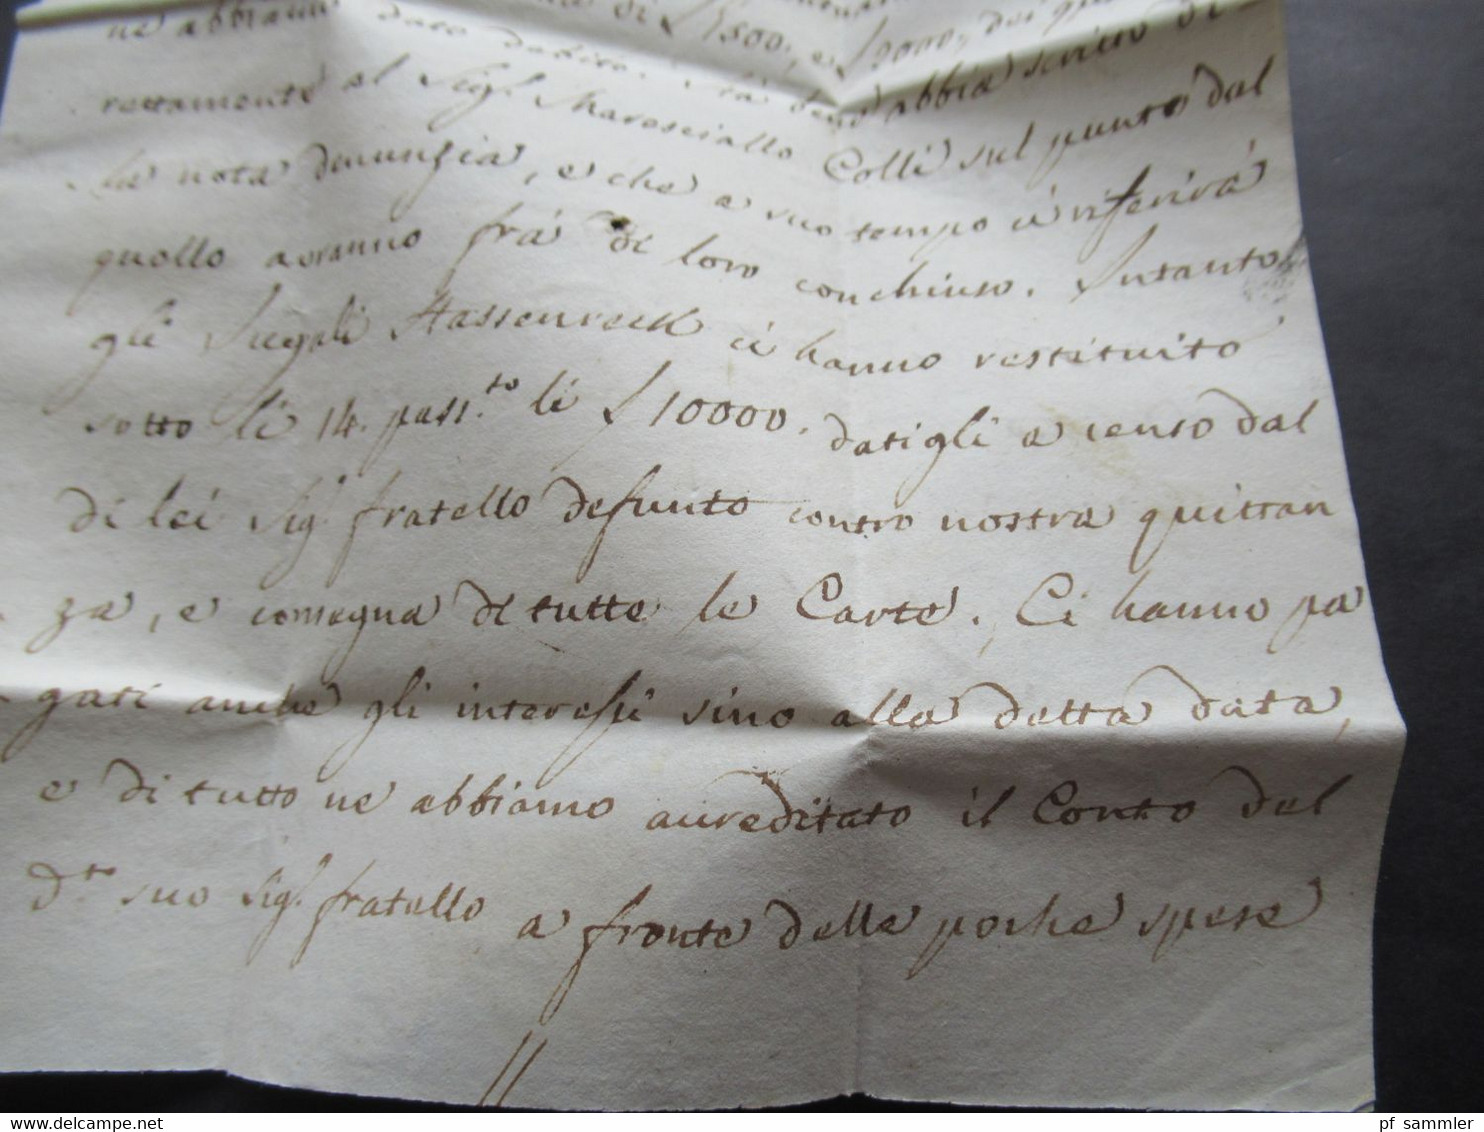 ne abbiamo dato debito. Sta bene abbia scritto di-
rettamente al Sig.r Maresciallo Colli sul punto dal
la nota denunzia, e che a suo tempo ci riferirà
quello avranno frà di loro conchiuso. Intanto
gli Sieg.li Hassenreck ci hanno restituito
sotto li 14. pass.to li £10000. datigli a censo dal
di lei Sig.r fratello defunto contro nostra quittan
za, e consegna di tutte le Carte. Ci hanno pa
gati anche gli interessi sino alla detta data,
e di tutto ne abbiamo accreditato il Conto del
d.to suo Sig.r fratello a fronte delle poche spese
pf_sammler